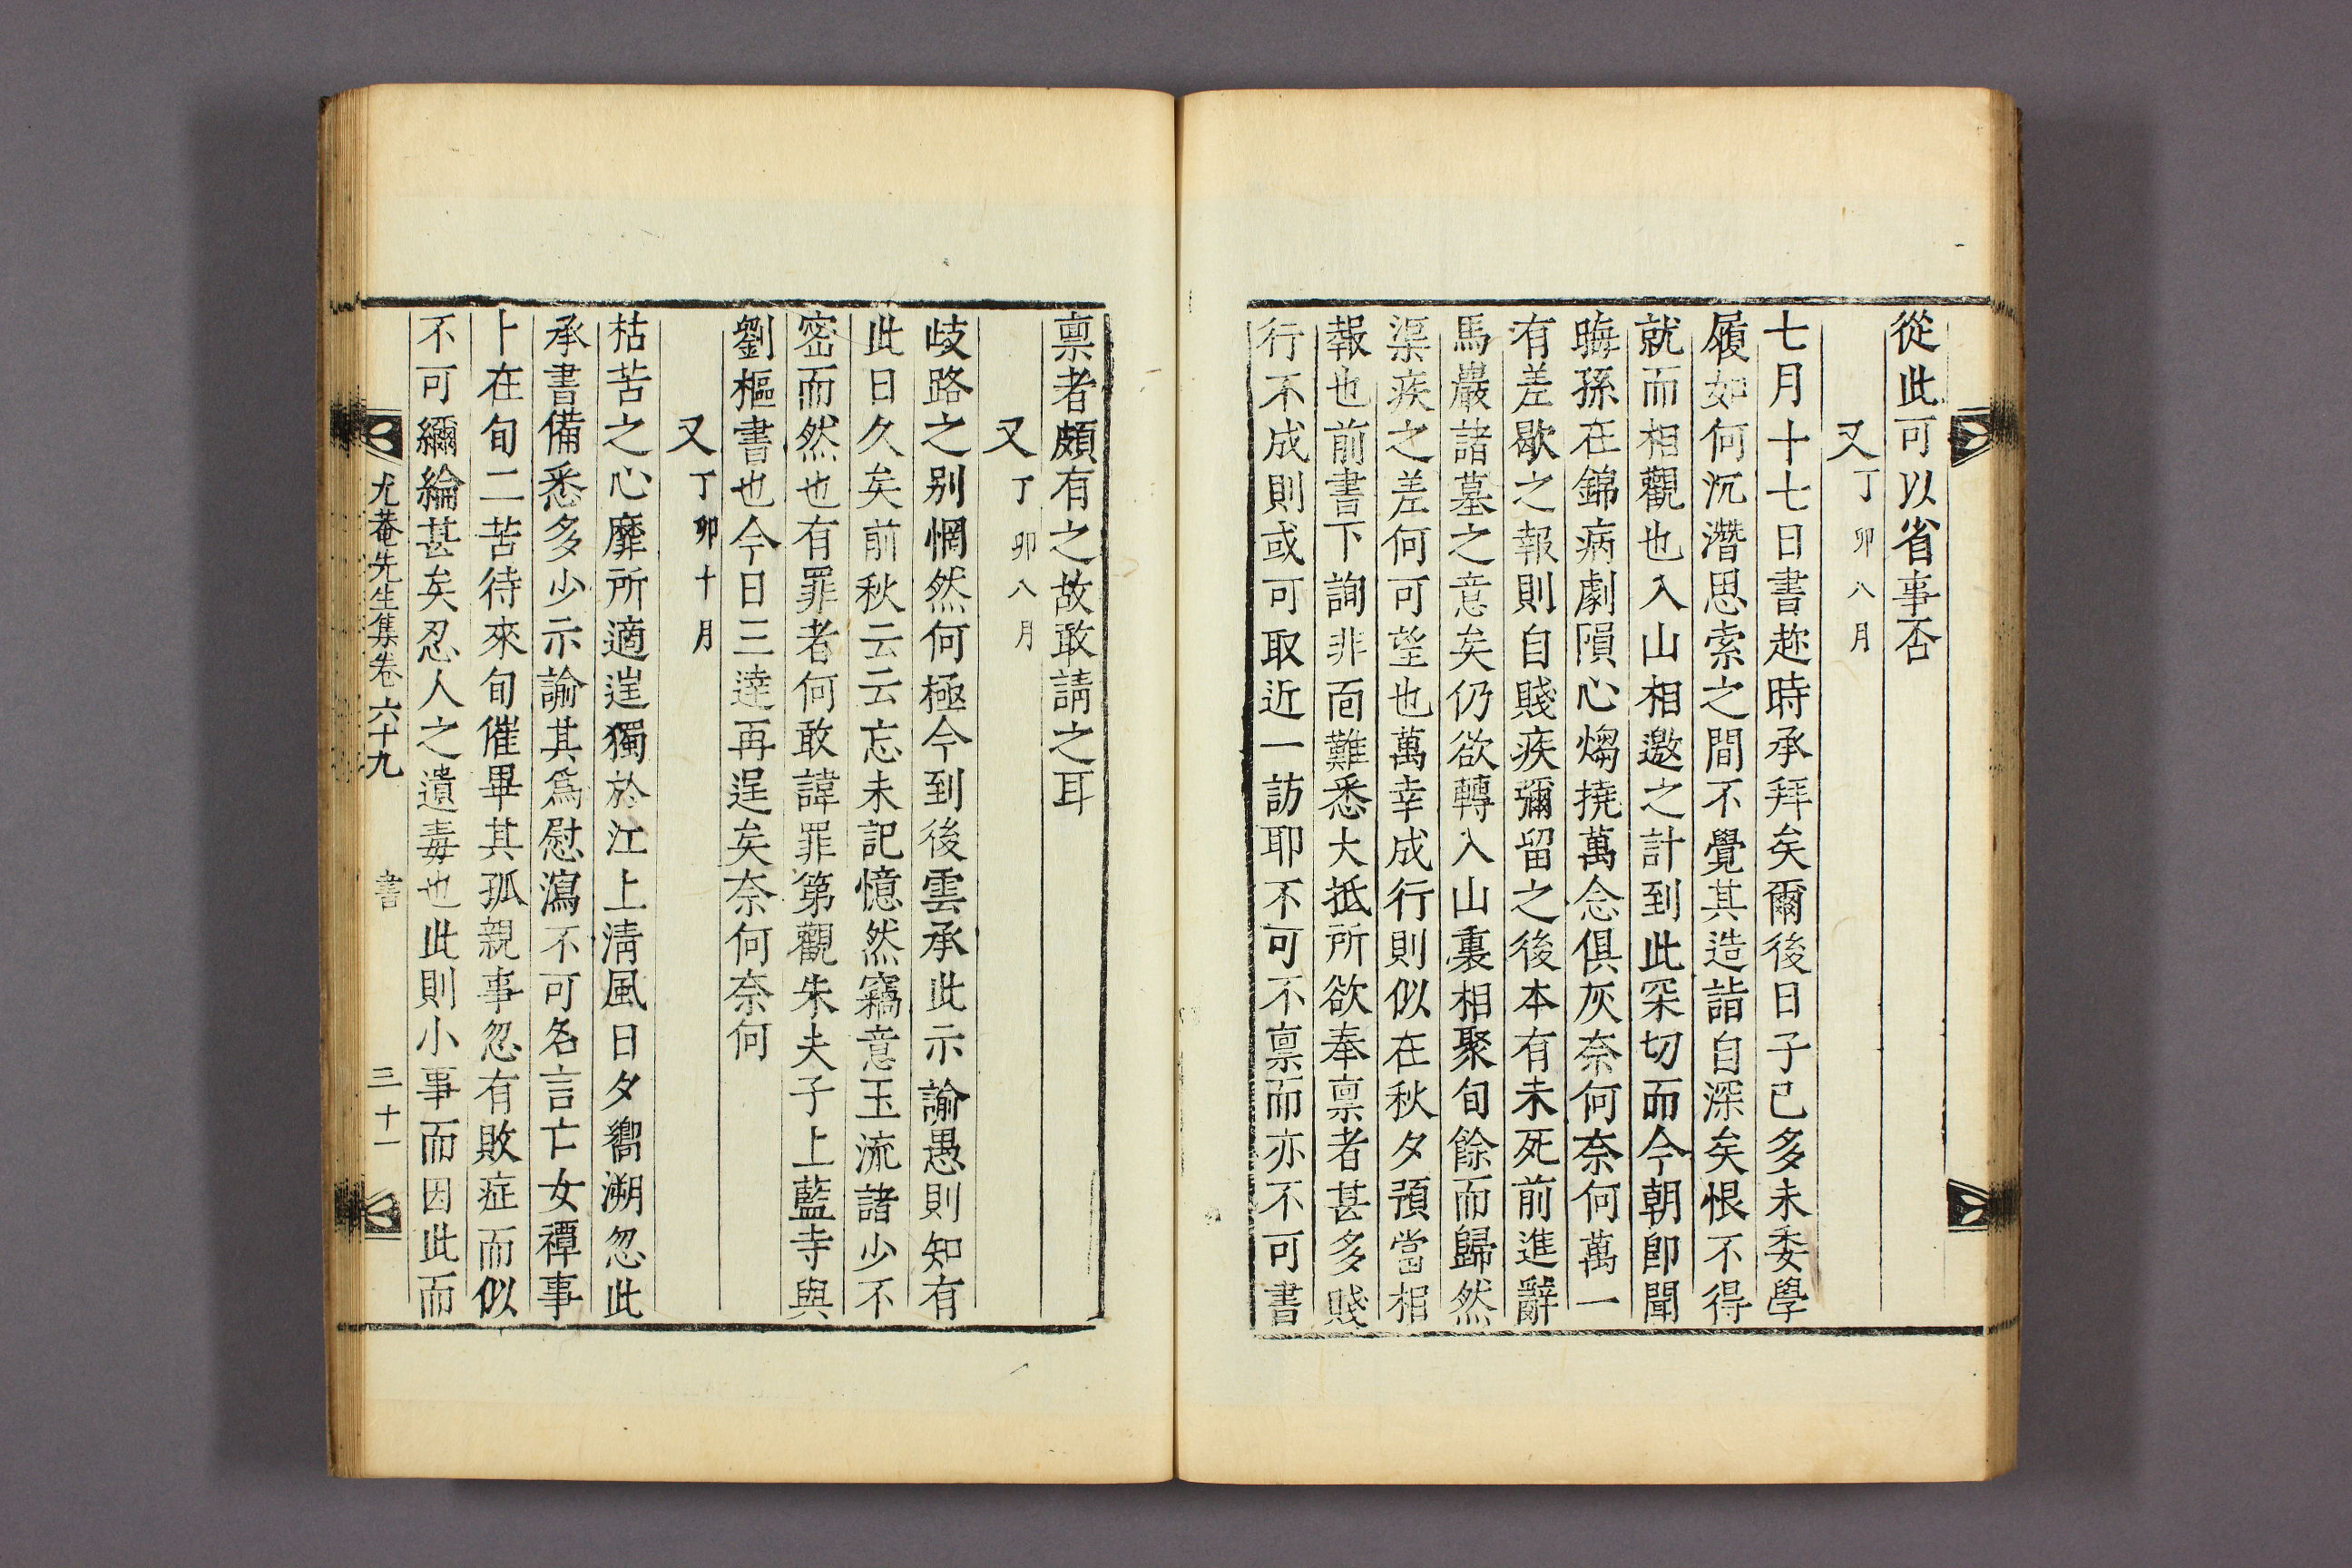 從此可以省事否
又丁卯八月
七月十七日書趂時承拜矣爾後日子已多未委學
履如何沉潛思索之間不覺其造詣自深矣恨不得
就而相觀也入山相邀之計到此深切而今朝卽聞
晦孫在錦病劇隕心煼撓萬念俱灰奈何奈何萬一
有差歇之報則自賤疾彌留之後本有未死前進辭
馬巖諸墓之意矣仍欲轉入山裏相聚旬餘而歸然
渠疾之差何可望也萬幸成行則似在秋夕預當相
報也前書下詢非面難悉大抵所欲奉稟者甚多賤
行不成則或可取近一訪耶不可不稟而亦不可書
稟者頗有之故敢請之耳
又丁卯八月
歧路之別惘然何極今到後雲承此示諭愚則知有
此日久矣前秋云云忘未記憶然竊意玉流諸少不
密而然也有罪者何敢諱罪第觀朱夫子上藍寺與
劉樞書也今日三達再逞矣奈何奈何
又丁卯十月
枯苦之心靡所適逞獨於江上淸風日夕嚮溯忽此
承書備悉多少示諭其爲慰瀉不可名言亡女禫事
卜在旬二苦待來旬催畢其孤親事忽有敗症而似
不可繃綸甚矣忍人之遺毒也此則小事而因此而
尤菴先生集卷六十九 書 三十一